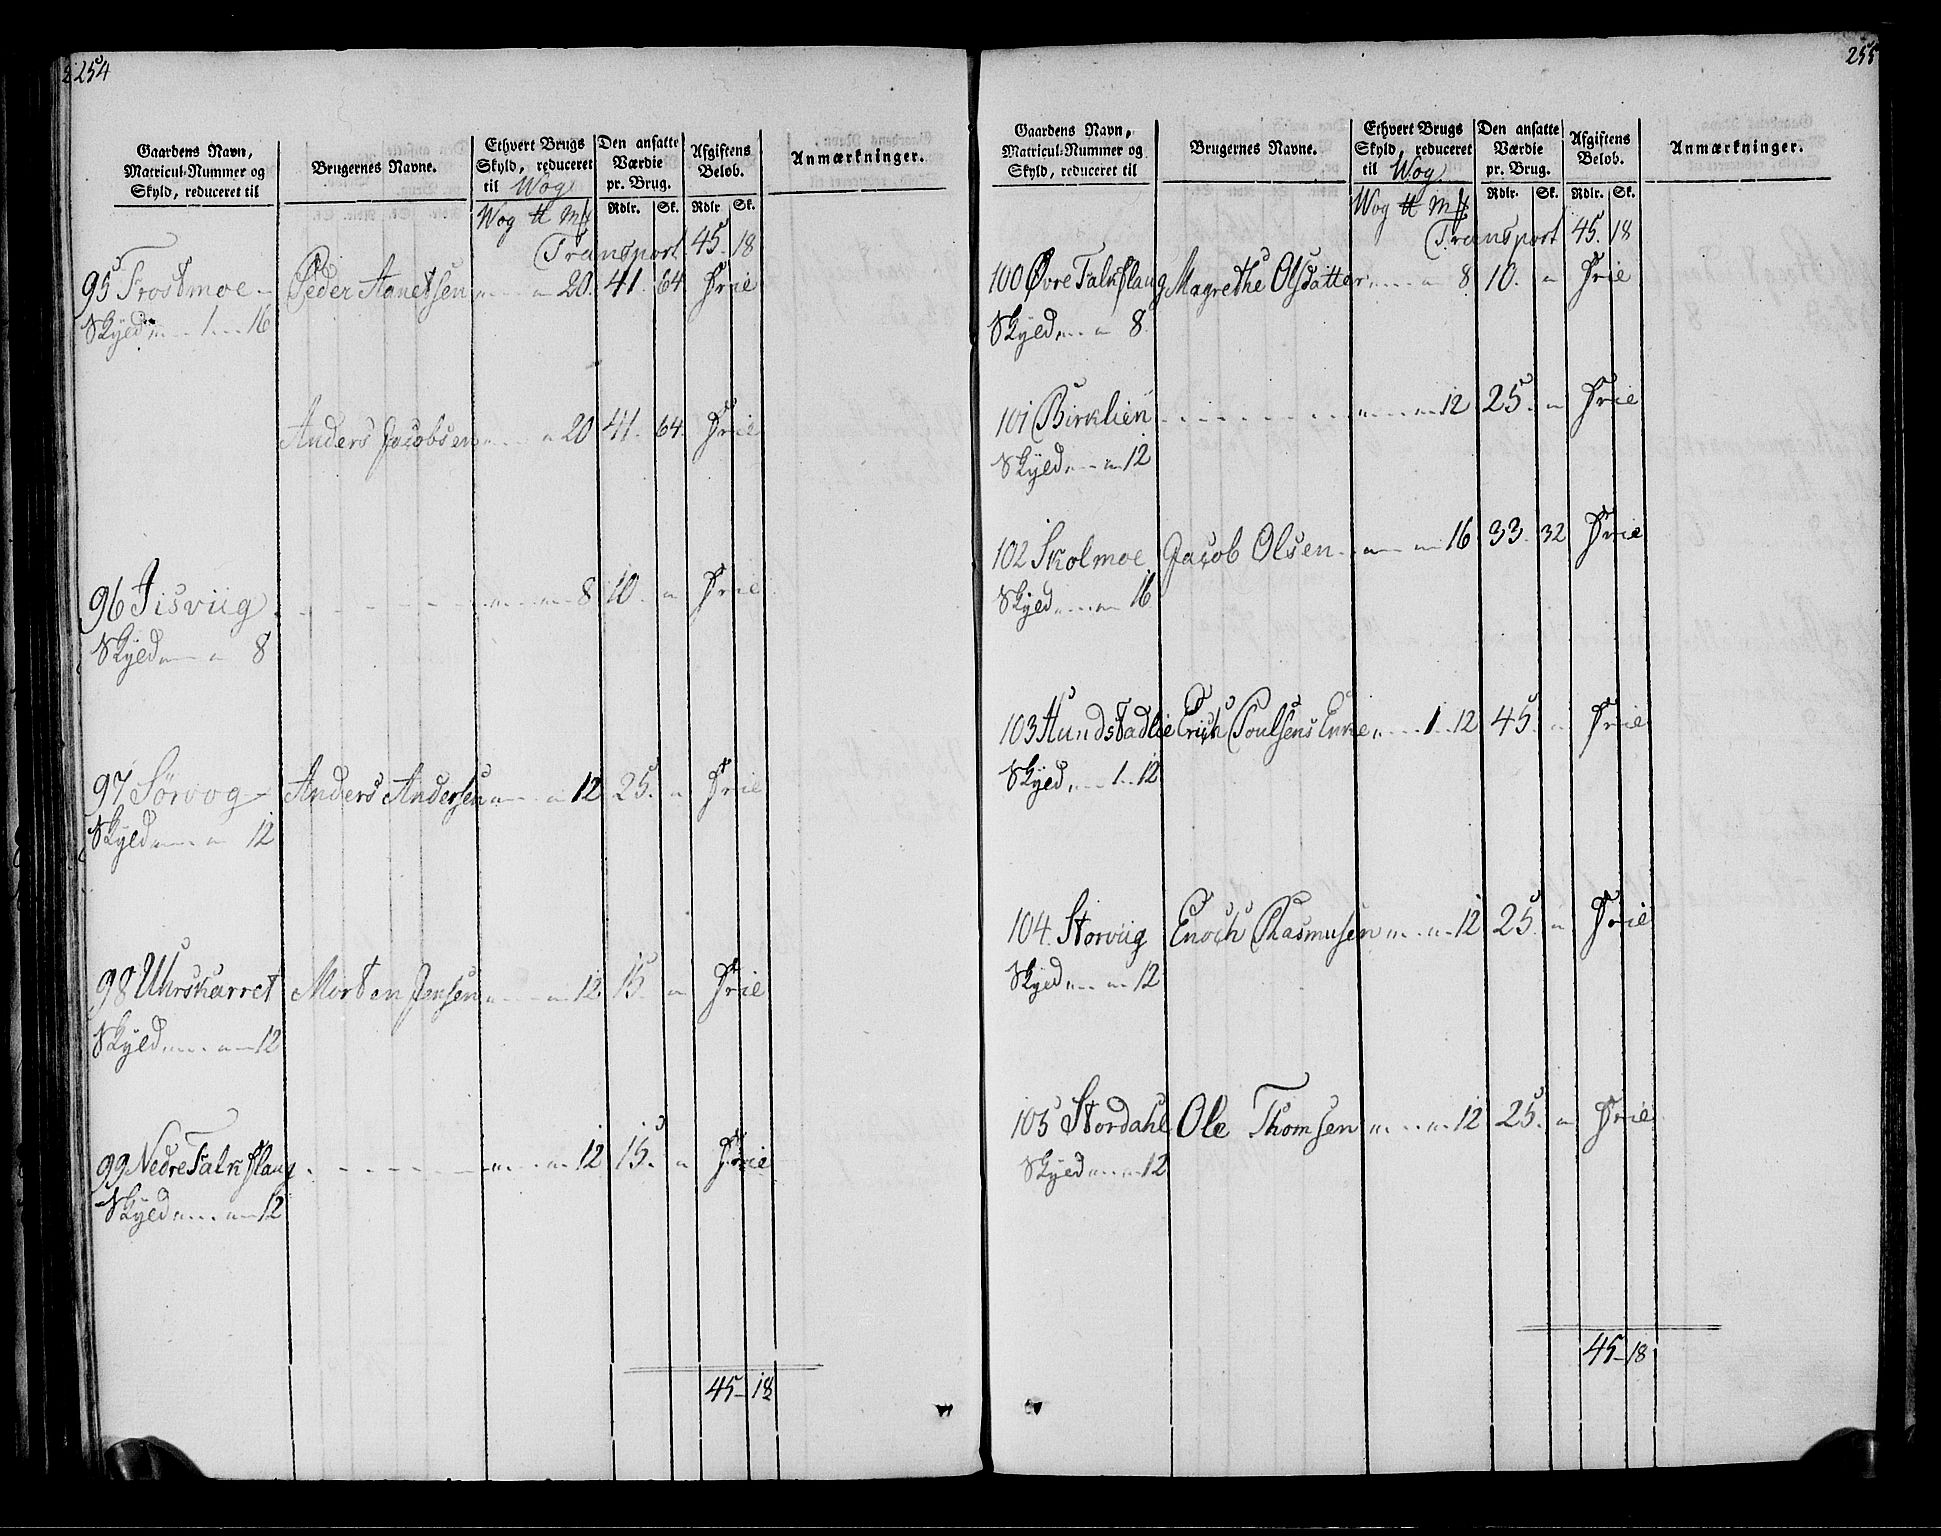 254
Gaardens Navn,
Matricul-Nummer og
Skyld, reduceret til
Brugernes Navne.
Ethvert Brugs
Skyld, reduceret
til Wog
Den ansatte
Værdie
pr. Brug.
Afgiftens
Beløb.
Anmærkninger.
Wog ℔ Mk Rdlr. Sk. Rdlr Sk.
Transport 45. 18
95 Trostmoe - Peder Aanetsen 20. 41. 64 Frie
Skyld 1 16
Anders Jacobsen 20 41. 64. Frie
96 Fisviig 8 10. Frie
Skyld 8
97 Sørvog Anders Andersen 12 25. Frie
Skyld 12
98 Uhrskarret Morten Jensen 12 15. Frie
Skyld 12
99 Nedre Falkflaug 12 15. Frie
Skyld 12
45-18
255
Gaardens Navn,
Matricul-Nummer og
Skyld, reduceret til
Brugernes Navne.
Ethvert Brugs
Skyld, reduceret
til Wog
Den ansatte
Værdie
pr. Brug.
Afgiftens
Beløb.
Anmærkninger.
Wog ℔ Mk Rdlr. Sk. Rdlr. Sk.
Transport 45. 18
100 Øvre Falkflaug Magrethe Olsdatter 8 10. Frie
Skyld 8.
101 Birklien 12 25. Frie
Skyld 12
102 Skolmoe Jacob Olsen 16 33. 32 Frie
Skyld 16
103 Hundstadlie Erich Poulsens Enke 1 12 45 Frie
Skyld 1 12
104. Storviig Enoch Rasmusen 12 25. Frie
Skyld 12
105 Stordahl Ole Thomsen 12 25. Frie
Skyld 12
45-18